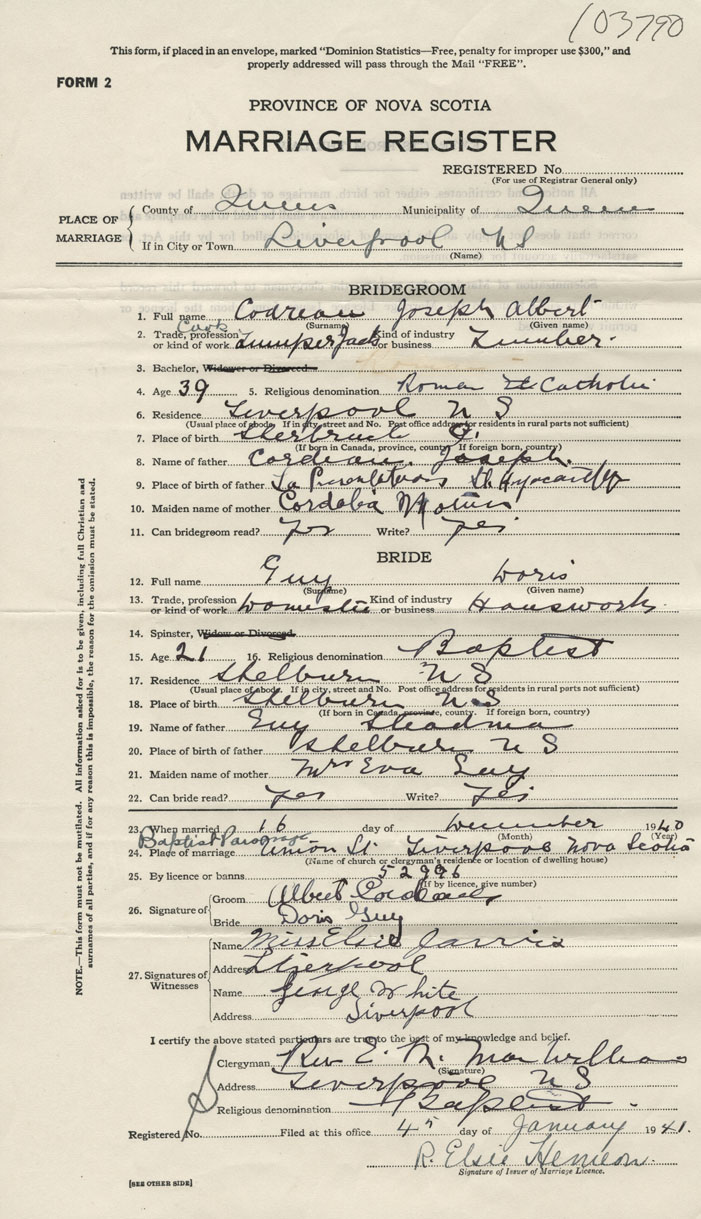 103790
This form, if placed in an envelope, marked "Dominion Statistics—Free, penalty for improper use $300," and
properly addressed will pass through the Mail "FREE".
FORM 2
PROVINCE OF NOVA SCOTIA
MARRIAGE REGISTER
REGISTERED No.
(For use of Registrar General only)
PLACE OF MARRIAGE
County of Queens Municipality of Queens
If in City or Town Liverpool N S
(Name)
BRIDEGROOM
1. Full name Codreau Joseph Albert
(Surname) (Given name)
Cook
2. Trade, profession or kind of work Lumper Jack Kind of industry or business Lumber.
3. Bachelor, Widower or Divorced
4. Age 39 5. Religious denomination Roman Catholic
6. Residence Liverpool N S
(Usual place of abode. If in city, street and No. Post office address for residents in rural parts not sufficient)
7. Place of birth Sherbruck Q.
(If born in Canada, province, county. If foreign born, country)
8. Name of father Cordeau. Joseph.
9. Place of birth of father La
10. Maiden name of mother Cordelia
11. Can bridegroom read? yes Write? yes
BRIDE
12. Full name Guy Doris
(Surname) (Given name)
13. Trade, profession or kind of work Domestic Kind of industry or business Housework
14. Spinster, Widow or Divorced
15. Age 21 16. Religious denomination Baptist
17. Residence Shelburn N S
(Usual place of abode. If in city, street and No. Post office address for residents in rural parts not sufficient)
18. Place of birth Shelburn N S
(If born in Canada, province, county. If foreign born, country)
19. Name of father Guy Steadma
20. Place of birth of father Shelburn N S
21. Maiden name of mother Mrs Eva Guy
22. Can bride read? yes Write? yes
23. When married 16 day of December 1940
(Month) (Year)
Baptist Parsonage
24. Place of marriage Union St. Liverpool Nova Scotia
(Name of church or clergyman's residence or location of dwelling house)
25. By licence or banns 52996
(If by licence, give number)
26. Signature of
Groom Albert Cordeau
Bride Doris Guy
27. Signatures of Witnesses
Name Miss Elsie Jarvis
Address Liverpool
Name George White
Address Liverpool
I certify the above stated particulars are true to the best of my knowledge and belief.
Clergyman Rev E. N. MacWilliam
(Signature)
Address Liverpool N S
Religious denomination Baptist.
Registered No. Filed at this office 4th day of January 1941.
R. Elsie Hemeon.
Signature of Issuer of Marriage Licence.
[SEE OTHER SIDE]
NOTE.—This form must not be mutilated. All information asked for is to be given, including full Christian and
surnames of all parties, and if for any reason this is impossible, the reason for the omission must be stated.